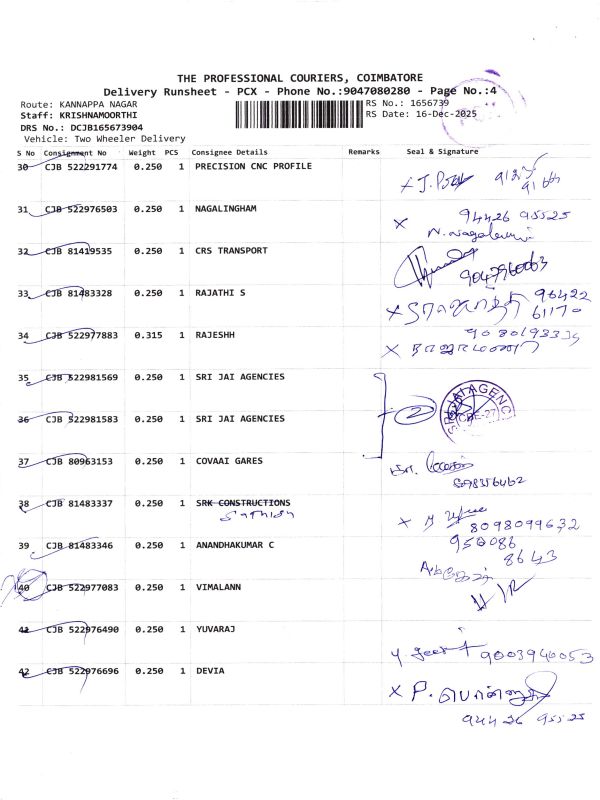 THE PROFESSIONAL COURIERS, COIMBATORE
Delivery Runsheet - PCX - Phone No.:9047080280 - Page No.:4
Route: KANNAPPA NAGAR
RS No.: 1656739
Staff: KRISHNAMOORTHI
RS Date: 16-Dec-2025
DRS No.: DCJB165673904
Vehicle: Two Wheeler Delivery
S No Consignment No Weight PCS Consignee Details Remarks Seal & Signature
30 CJB 522291774 0.250 1 PRECISION CNC PROFILE
31 CJB 522976503 0.250 1 NAGALINGHAM
94426 95525
32 CJB 81419535 0.250 1 CRS TRANSPORT
9047960063
33 CJB 81483328 0.250 1 RAJATHI S
96422
61170
34 CJB 522977883 0.315 1 RAJESHH
35 CJB 522981569 0.250 1 SRI JAI AGENCIES
36 CJB 522981583 0.250 1 SRI JAI AGENCIES
2
37 CJB 80963153 0.250 1 COVAAI GARES
38 CJB 81483337 0.250 1 SRK CONSTRUCTIONS
8098099632
39 CJB 81483346 0.250 1 ANANDHAKUMAR C
950086
8643
40 CJB 522977083 0.250 1 VIMALANN
41 CJB 522976490 0.250 1 YUVARAJ
9003940053
42 CJB 522976696 0.250 1 DEVIA
94426 95525